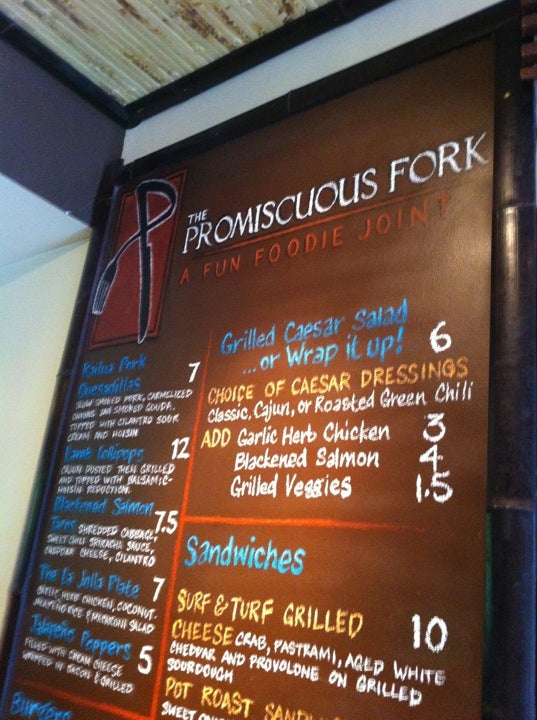 THE
PROMISCUOUS FORK
A FUN FOODIE JOINT
Kailua Pork 7
Quesadillas
SLOW SMOKED PORK, CARMELIZED
ONIONS AND SMOKED GOUDA.
TOPPED WITH CILANTRO SOUR
CREAM AND HOISIN
Lamb Lollipops 12
CAJUN DUSTED THEN GRILLED
AND TOPPED WITH BALSAMIC-
HOISIN REDUCTION.
Blackened Salmon 7.5
Tacos SHREDDED CABBAGE,
SWEET CHILI SRIRACHA SAUCE,
CHEDDAR CHEESE, CILANTRO
The La Jolla Plate 7
GARLIC, HERB CHICKEN, COCONUT-
JALAPEÑO RICE & MACARONI SALAD
Jalapeño Poppers 5
FILLED WITH CREAM CHEESE
WRAPPED IN BACON & GRILLED
Burgers
Grilled Caesar Salad
...or Wrap it up! 6
CHOICE OF CAESAR DRESSINGS
Classic, Cajun, or Roasted Green Chili
ADD Garlic Herb Chicken 3
Blackened Salmon 4
Grilled Veggies 1.5
Sandwiches
SURF & TURF GRILLED 10
CHEESE CRAB, PASTRAMI, AGED WHITE
CHEDDAR AND PROVOLONE ON GRILLED
SOURDOUGH
POT ROAST
SWEET